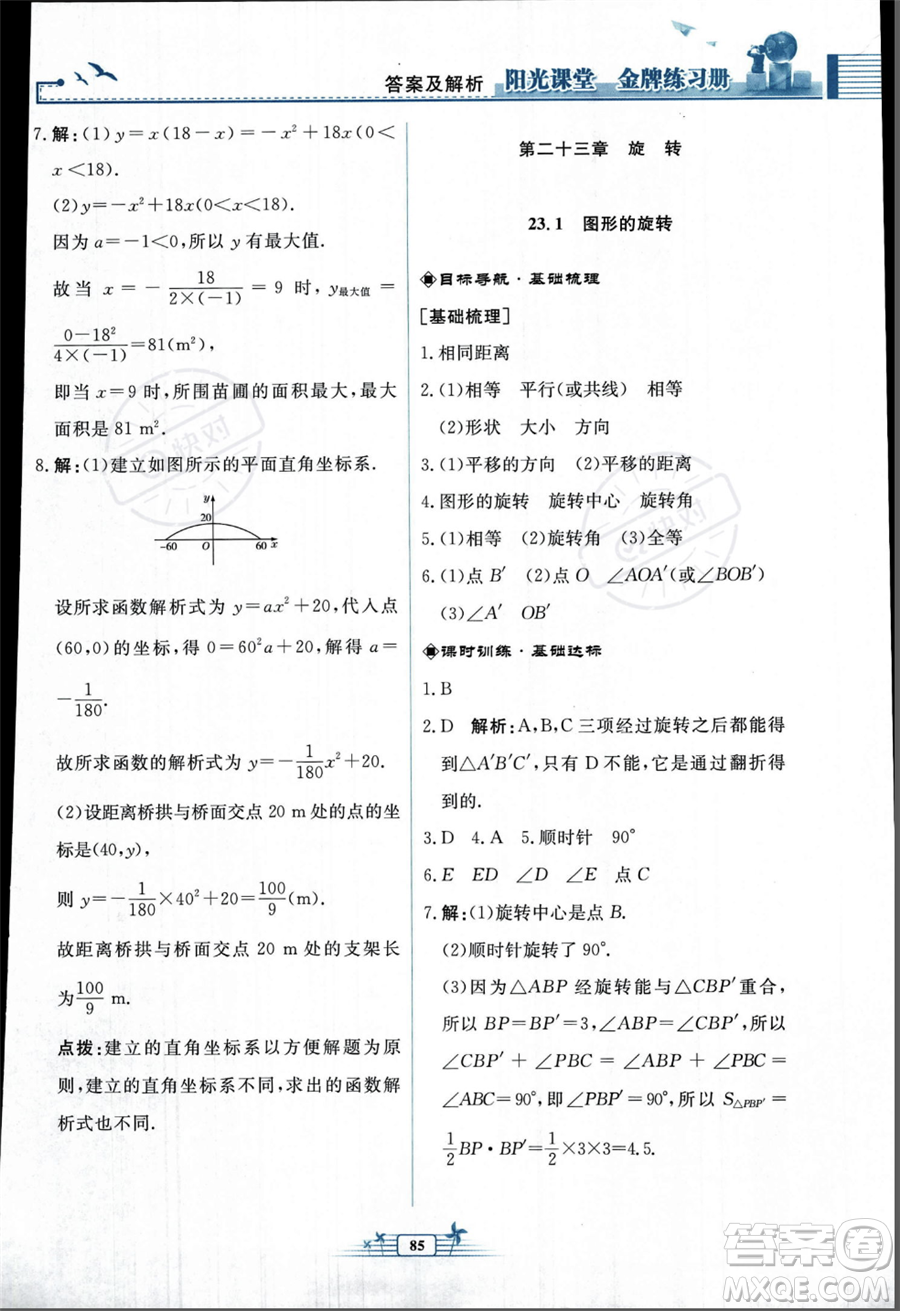 答案及解析 阳光课堂 金牌练习册
7.解:(1)y=x(18-x)=-x²+18x(0<
x<18).
(2)y=-x²+18x(0<x<18).
因为a=-1<0,所以y有最大值.
故当 x=-18/(2×(-1))=9 时,y最大值=
(0-18²)/(4×(-1))=81(m²),
即当x=9时,所围苗圃的面积最大,最大
面积是81 m².
8.解:(1)建立如图所示的平面直角坐标系.
y
20
-60 O 60 x
设所求函数解析式为y=ax²+20,代入点
(60,0)的坐标,得0=60²a+20,解得a=
-1/180.
故所求函数的解析式为y=-1/180x²+20.
(2)设距离桥拱与桥面交点20 m处的点的坐
标是(40,y),
则y=-1/180×40²+20=100/9(m).
故距离桥拱与桥面交点20 m处的支架长
为100/9 m.
点拨:建立的直角坐标系以方便解题为原
则,建立的直角坐标系不同,求出的函数解
析式也不同.
第二十三章 旋 转
23.1 图形的旋转
目标导航·基础梳理
[基础梳理]
1.相同距离
2.(1)相等 平行(或共线) 相等
(2)形状 大小 方向
3.(1)平移的方向 (2)平移的距离
4.图形的旋转 旋转中心 旋转角
5.(1)相等 (2)旋转角 (3)全等
6.(1)点B′ (2)点O ∠AOA′(或∠BOB′)
(3)∠A′ OB′
课时训练·基础达标
1.B
2.D 解析:A,B,C三项经过旋转之后都能得
到△A′B′C′,只有D不能,它是通过翻折得
到的.
3.D 4.A 5.顺时针 90°
6.E ED ∠D ∠E ∠DCE
7.解:(1)旋转中心是点B.
(2)顺时针旋转了90°.
(3)因为△ABP经旋转能与△CBP′重合,
所以BP=BP′=3,∠ABP=∠CBP′,所以
∠CBP′+∠PBC=∠ABP+∠PBC=
∠ABC=90°,即∠PBP′=90°,所以S△PBP′=
1/2BP·BP′=1/2×3×3=4.5.
85
快对
快对
答案圈
MXQE.COM